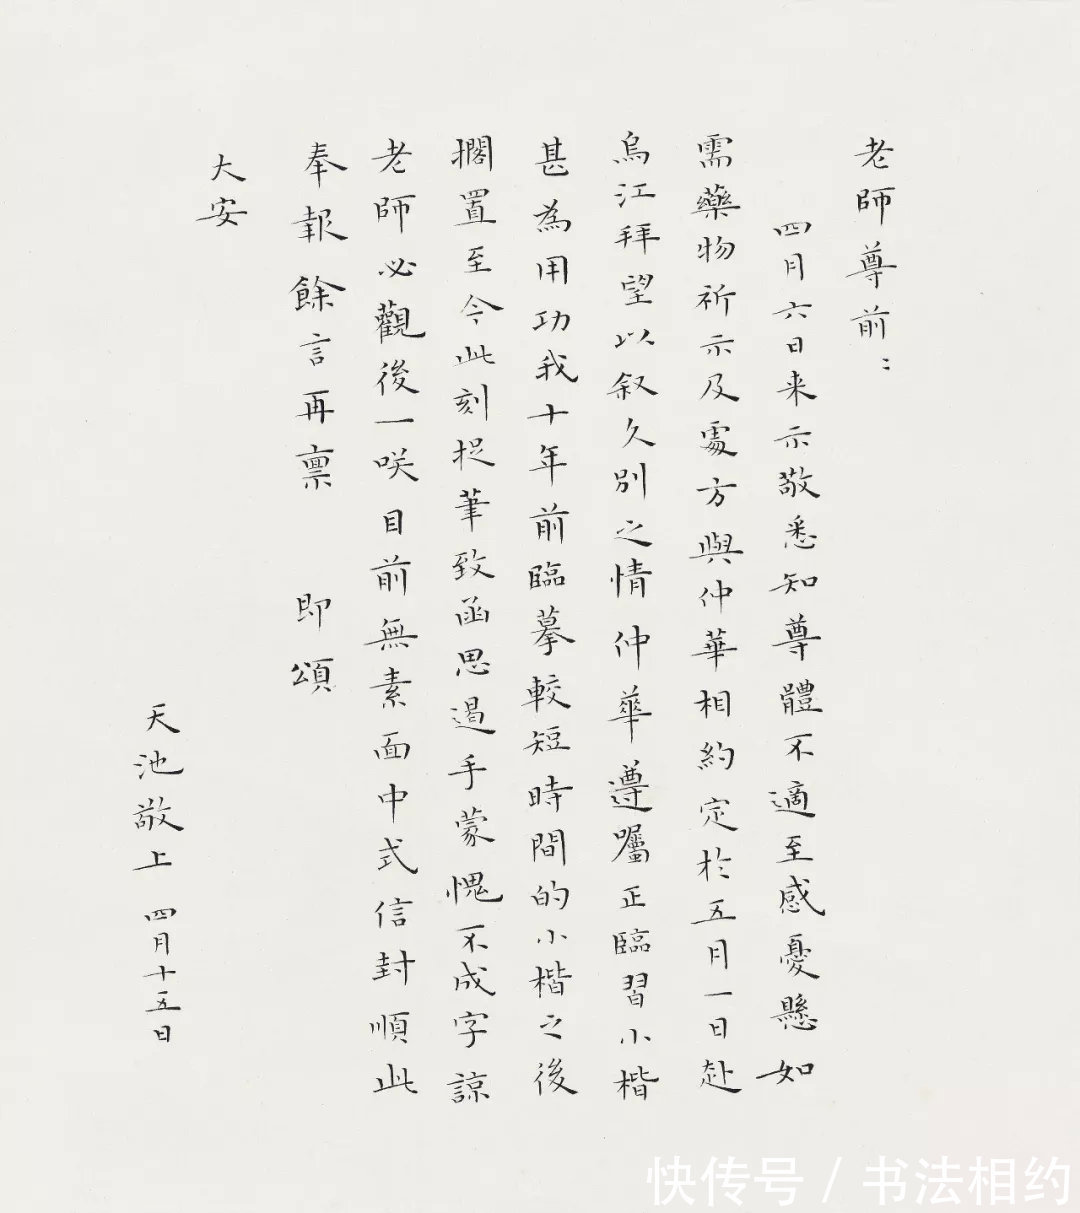 老師尊前：
四月六日来示敬悉知尊體不適至感憂懸如
需藥物祈示及處方與仲華相約定於五月一日赴
烏江拜望以叙久別之情仲華遵囑正臨習小楷
甚為用功我十年前臨摹較短時間的小楷之後
擱置至今此刻捉筆致函思遏手蒙愧不成字諒
老師必觀後一咲目前無素面中式信封順此
奉報餘言再禀 即頌
大安
天池敬上 四月十五日
快传号 / 书法相约